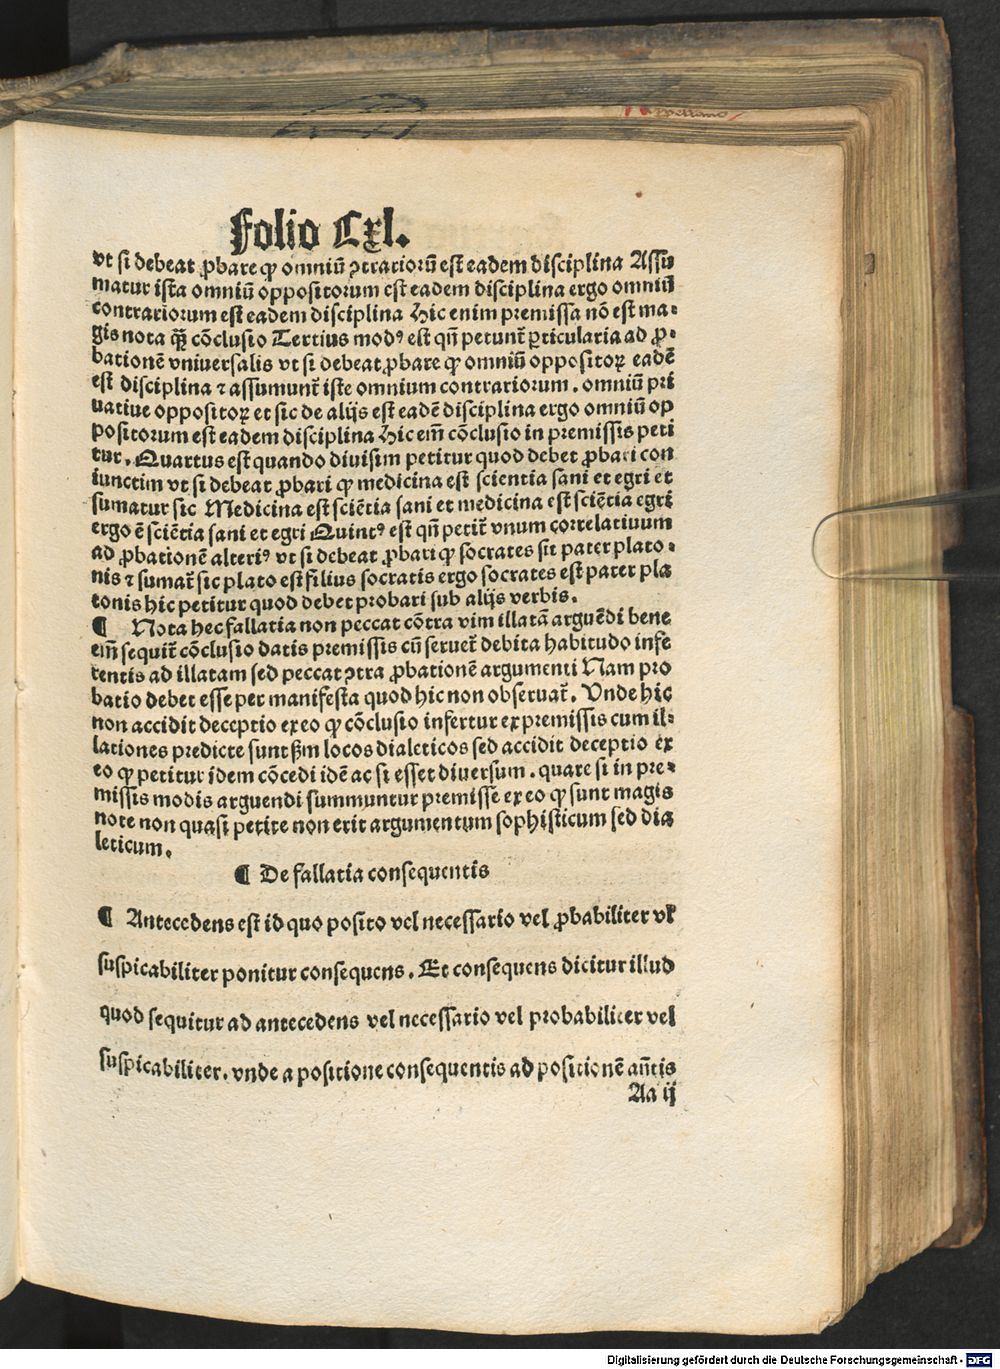 Folio Cxl.
vt si debeat ꝓbare ꝙ omniū ꝯtrariorū est eadem disciplina Assu
matur ista omniū oppositorum est eadem disciplina ergo omniū
contrariorum est eadem disciplina Hic enim premissa nō est ma⸗
gis nota qȝ̄ cōclusio Tertius modꝰ est qn̄ petunt̃ ꝑticularia ad ꝓ⸗
bationē vniuersalis vt si debeat ꝓbare ꝙ omniū oppositoꝝ eadē
est disciplina ⁊ assumunt̃ iste omnium contrariorum. omniū pri
uatiue oppositoꝝ et sic de alijs est eadē disciplina ergo omniū op
positorum est eadem disciplina Hic em̄ cōclusio in premissis peti
tur. Quartus est quando diuisim petitur quod debet ꝓbari con
iunctim vt si debeat ꝓbari ꝙ medicina est scientia sani et egri et
sumatur sic Medicina est sciētia sani et medicina est sciētia egri
ergo ē sciētia sani et egri Quintꝰ est qn̄ petit̃ vnum correlatiuum
ad ꝓbationē alteriꝰ vt si debeat ꝓbari ꝙ socrates sit pater plato⸗
nis ⁊ sumat̃ sic plato est filius socratis ergo socrates est pater pla
tonis hic petitur quod debet probari sub alijs verbis.
¶ Nota hec fallatia non peccat cōtra vim illatā arguēdi bene
em̄ sequit̃ cōclusio datis premissis cū seruet̃ debita habitudo infe
rentis ad illatam sed peccat ꝯtra ꝓbationē argumenti Nam pro
batio debet esse per manifesta quod hic non obseruat̃. Vnde hic
non accidit deceptio ex eo ꝙ cōclusio infertur ex premissis cum il⸗
lationes predicte sunt ẜm locos dialeticos sed accidit deceptio ex
eo ꝙ petitur idem cōcedi idē ac si esset diuersum. quare si in pre⸗
missis modis arguendi summuntur premisse ex eo ꝙ sunt magis
note non quasi petite non erit argumentum sophisticum sed dia
leticum.
¶ De fallatia consequentis
¶ Antecedens est id quo posito vel necessario vel ꝓbabiliter vł
suspicabiliter ponitur consequens. Et consequens dicitur illud
quod sequitur ad antecedens vel necessario vel probabiliter vel
suspicabiliter. vnde a positione consequentis ad positionē an̄tis
Aa ij
Digitalisierung gefördert durch die Deutsche Forschungsgemeinschaft - DFG